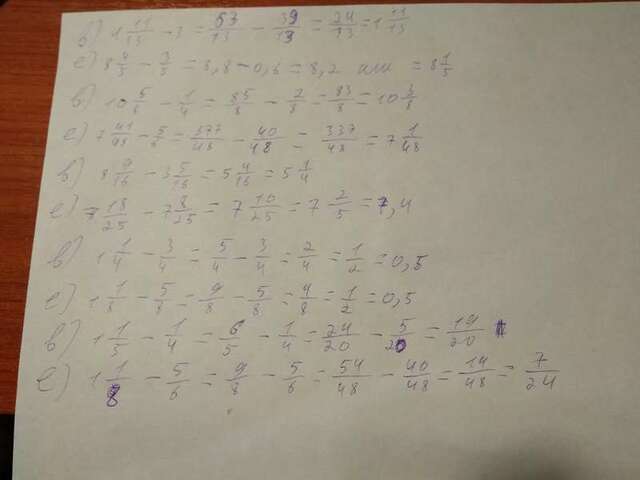 в) 4 11/13 - 3 = 63/13 - 39/13 = 24/13 = 1 11/13
е) 8 4/5 - 3/5 = 8,8 - 0,6 = 8,2 или = 8 1/5
в) 10 5/8 - 1/4 = 85/8 - 2/8 = 83/8 = 10 3/8
е) 7 41/48 - 5/6 = 377/48 - 40/48 = 337/48 = 7 1/48
в) 8 9/16 - 3 5/16 = 5 4/16 = 5 1/4
е) 18/25 - 7 8/25 = 7 10/25 = 7 2/5 = 7,4
в) 1 1/4 - 3/4 = 5/4 - 3/4 = 2/4 = 1/2 = 0,5
е) 1 1/8 - 5/8 = 9/8 - 5/8 = 4/8 = 1/2 = 0,5
в) 1 1/5 - 1/4 = 6/5 - 1/4 = 24/20 - 5/20 = 19/20
е) 1 1/8 - 5/6 = 9/8 - 5/6 = 54/48 - 40/48 = 14/48 = 7/24